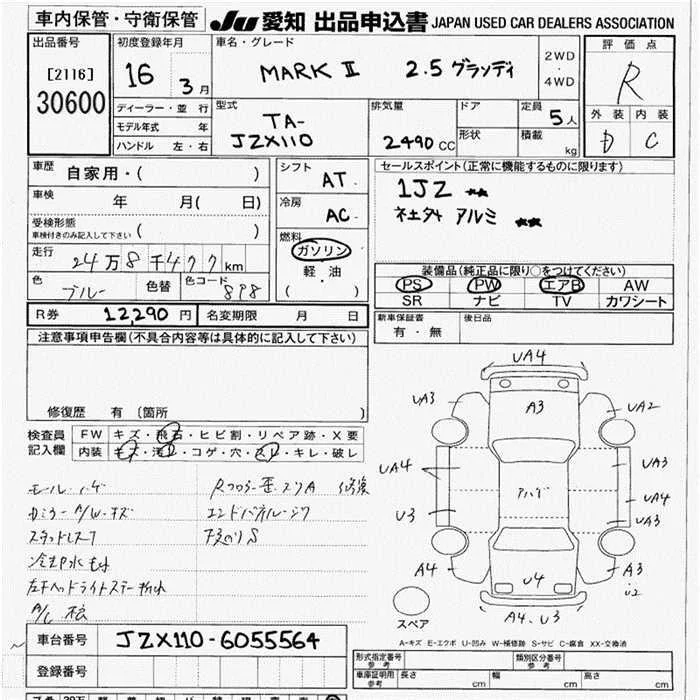 車内保管・守衛保管 JU 愛知 出品申込書 JAPAN USED CAR DEALERS ASSOCIATION
出品番号
[2116]
30600
初度登録年月
16 3月
車名・グレード
MARK II 2.5 グランディ
2WD
・
4WD
評価点
R
外装 内装
D C
ディーラー・並行
モデル年式 年
ハンドル 左・右
型式
TA-
JZX110
排気量
2490CC
ドア
形状
定員
5人
積載
kg
車歴
自家用・( )
車検
年 月( 日)
受検形態
車検付きのみ記入して下さい( )
走行
24万8千477km
色
ブルー
色替
色コード
8P8
シフト
AT.
冷房
AC.
燃料
ガソリン
軽・油
( )
セールスポイント(正常に機能するものに限ります)
1JZ ★★
社外 アルミ ★★
装備品(純正品に限り○をつけてください)
PS PW エアB AW
SR ナビ TV カワシート
R券 12,290円 名変期限 月 日
新車保証書
有・無
後日品
注意事項申告欄(不具合内容等は具体的に記入して下さい)
修復歴 有 〔箇所 〕
検査員
記入欄
FW キズ・飛石・ヒビ割・リペア跡・X要
内装 キズ・汚レ・コゲ・穴・スレ・キレ・破レ
モール ハゲ
ミラー A/W キズ
スタッドレス
冷却水もれ
左ヘッドライトステー折れ
Rフロアー歪 スリA 修復
エンドパネル
下廻りS
UA4
UA3
A3
UA2
UA4
UA3
UA4
U3
アハゲ
UA3
A4
U4
A3
U2
A4.U3
スペア
A-キズ E-エクボ U-凹み W-補修跡 S-サビ C-腐食 XX-交換済
車台番号 JZX110-6055564
登録番号
形式指定番号
参考
類別区分番号
参考
車庫証明用
参考
長さ cm 幅 cm 高さ cm